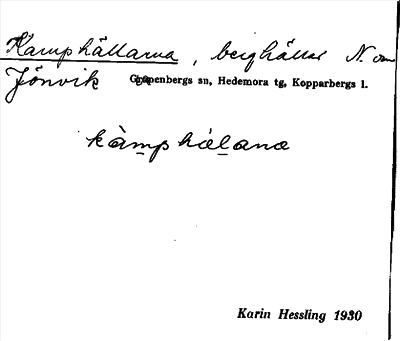 Kamphällarna, berghällar N. om
Jönvik Garpenbergs sn, Hedemora tg, Kopparbergs l.
kàmphálana
Karin Hessling 1930